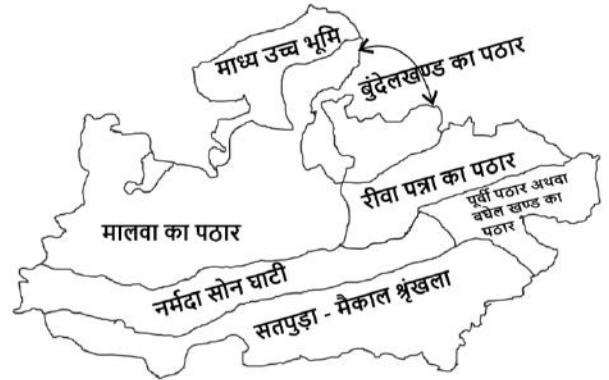 माध्य उच्च भूमि
बुंदेलखण्ड का पठार
रीवा पन्ना का पठार
पूर्वी पठार अथवा
बघेल खण्ड का
पठार
मालवा का पठार
नर्मदा सोन घाटी
सतपुड़ा - मैकाल श्रृंखला